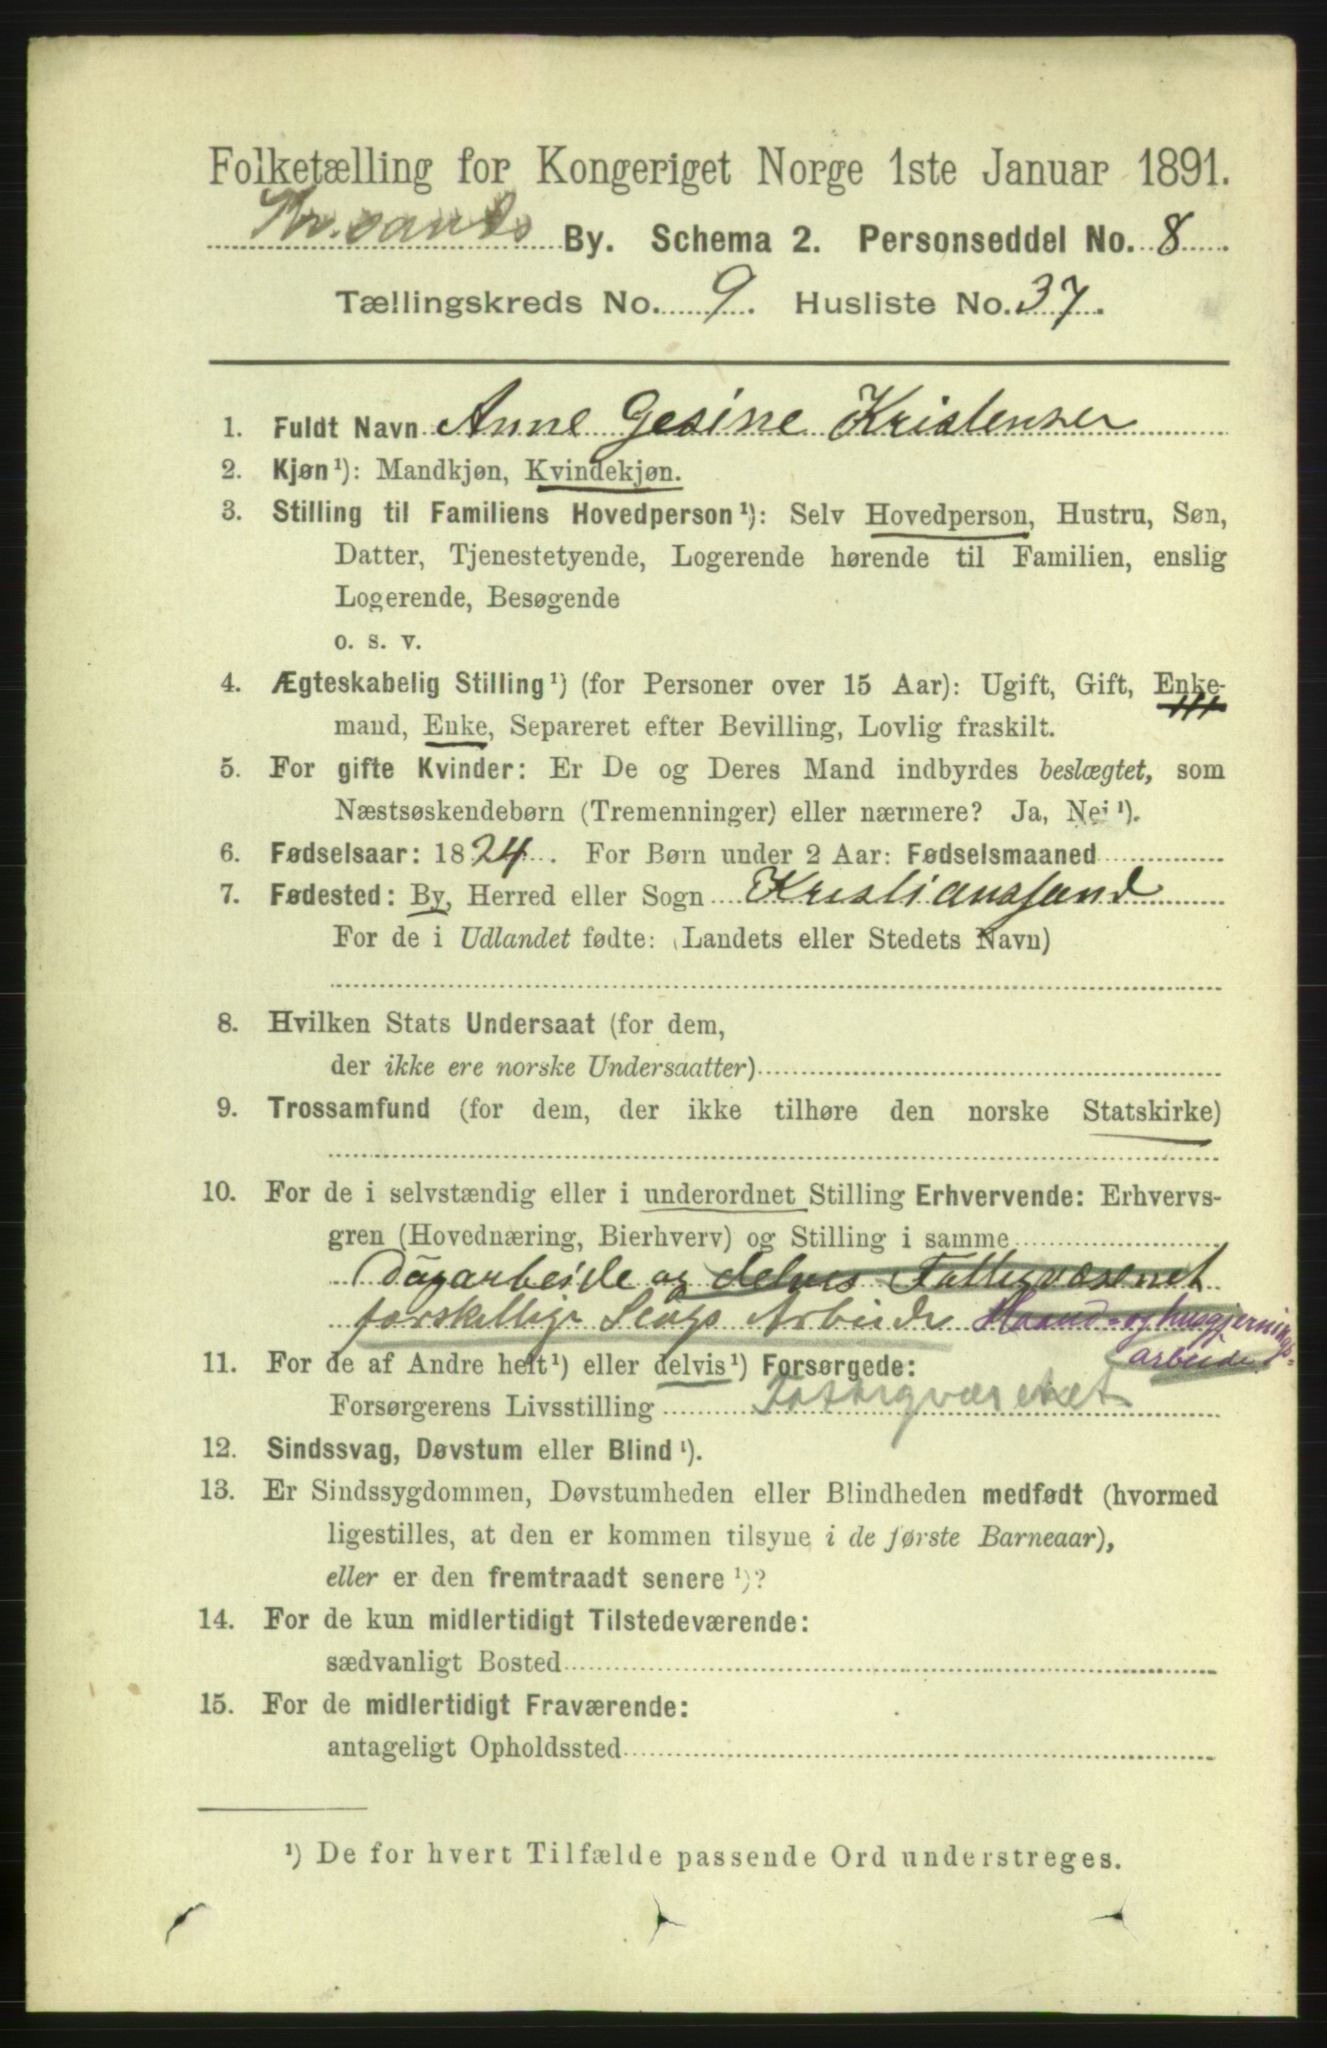 Folketælling for Kongeriget Norge 1ste Januar 1891.
Kr.sands By. Schema 2. Personseddel No. 8
Tællingskreds No. 9. Husliste No. 37.
1. Fuldt Navn Anne Gesine Kristensen
2. Kjøn ¹): Mandkjøn, Kvindekjøn.
3. Stilling til Familiens Hovedperson ¹): Selv Hovedperson, Hustru, Søn,
Datter, Tjenestetyende, Logerende hørende til Familien, enslig
Logerende, Besøgende
o. s. v.
4. Ægteskabelig Stilling ¹) (for Personer over 15 Aar): Ugift, Gift, Enke-
mand, Enke, Separeret efter Bevilling, Lovlig fraskilt.
5. For gifte Kvinder: Er De og Deres Mand indbyrdes beslægtet, som
Næstsøskendebørn (Tremenninger) eller nærmere? Ja, Nei ¹).
6. Fødselsaar: 1824. For Børn under 2 Aar: Fødselsmaaned
7. Fødested: By, Herred eller Sogn Kristianssand
For de i Udlandet fødte: (Landets eller Stedets Navn)
8. Hvilken Stats Undersaat (for dem,
der ikke ere norske Undersaatter)
9. Trossamfund (for dem, der ikke tilhøre den norske Statskirke)
10. For de i selvstændig eller i underordnet Stilling Erhvervende: Erhvervs-
gren (Hovednæring, Bierhverv) og Stilling i samme
Dagarbeide og delves Fattigvæsenet
forskellige Slags Arbeide Haand- og husgjernings-
arbeide
11. For de af Andre helt ¹) eller delvis ¹) Forsørgede:
Forsørgerens Livsstilling Fattigvæsenet
12. Sindssvag, Døvstum eller Blind ¹).
13. Er Sindssygdommen, Døvstumheden eller Blindheden medfødt (hvormed
ligestilles, at den er kommen tilsyne i de første Barneaar),
eller er den fremtraadt senere ¹)?
14. For de kun midlertidigt Tilstedeværende:
sædvanligt Bosted
15. For de midlertidigt Fraværende:
antageligt Opholdssted
¹) De for hvert Tilfælde passende Ord understreges.